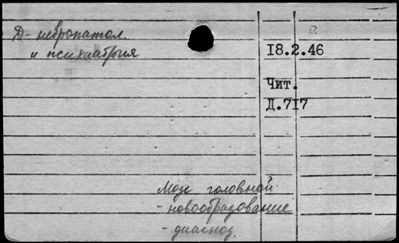 Д- невропатол.
и психиатрия
18.2.46
Чит.
Д.717
Мозг головной
- новообразование
- диагноз.